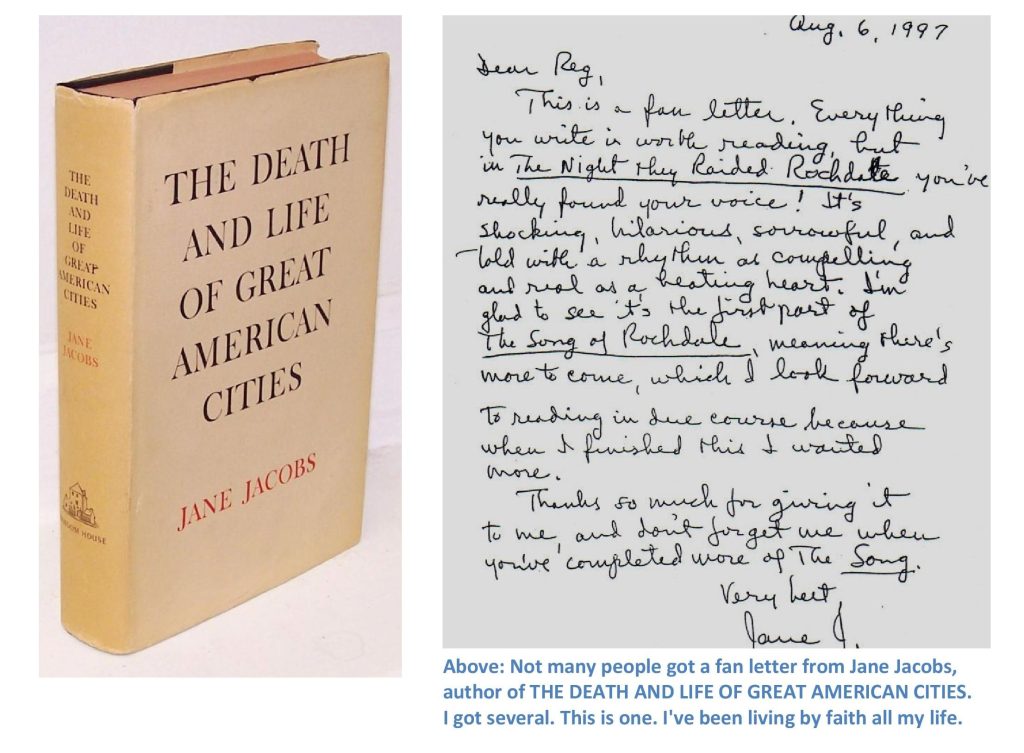 THE
DEATH
AND
LIFE
OF
GREAT
AMERICAN
CITIES
JANE
JACOBS
RANDOM HOUSE
THE DEATH
AND LIFE
OF GREAT
AMERICAN
CITIES
JANE JACOBS
Aug. 6, 1997
Dear Reg,
This is a fan letter. Everything
you write is worth reading, but
in The Night they Raided Rochdale you've
really found your voice! It's
shocking, hilarious, sorrowful, and
told with a rhythm as compelling
and real as a beating heart. I'm
glad to see it's the first part of
The Song of Rochdale, meaning there's
more to come, which I look forward
to reading in due course because
when I finished this I wanted
more.
Thanks so much for giving it
to me and don't forget me when
you've completed more of The Song.
Very best,
Jane J.
Above: Not many people got a fan letter from Jane Jacobs,
author of THE DEATH AND LIFE OF GREAT AMERICAN CITIES.
I got several. This is one. I've been living by faith all my life.